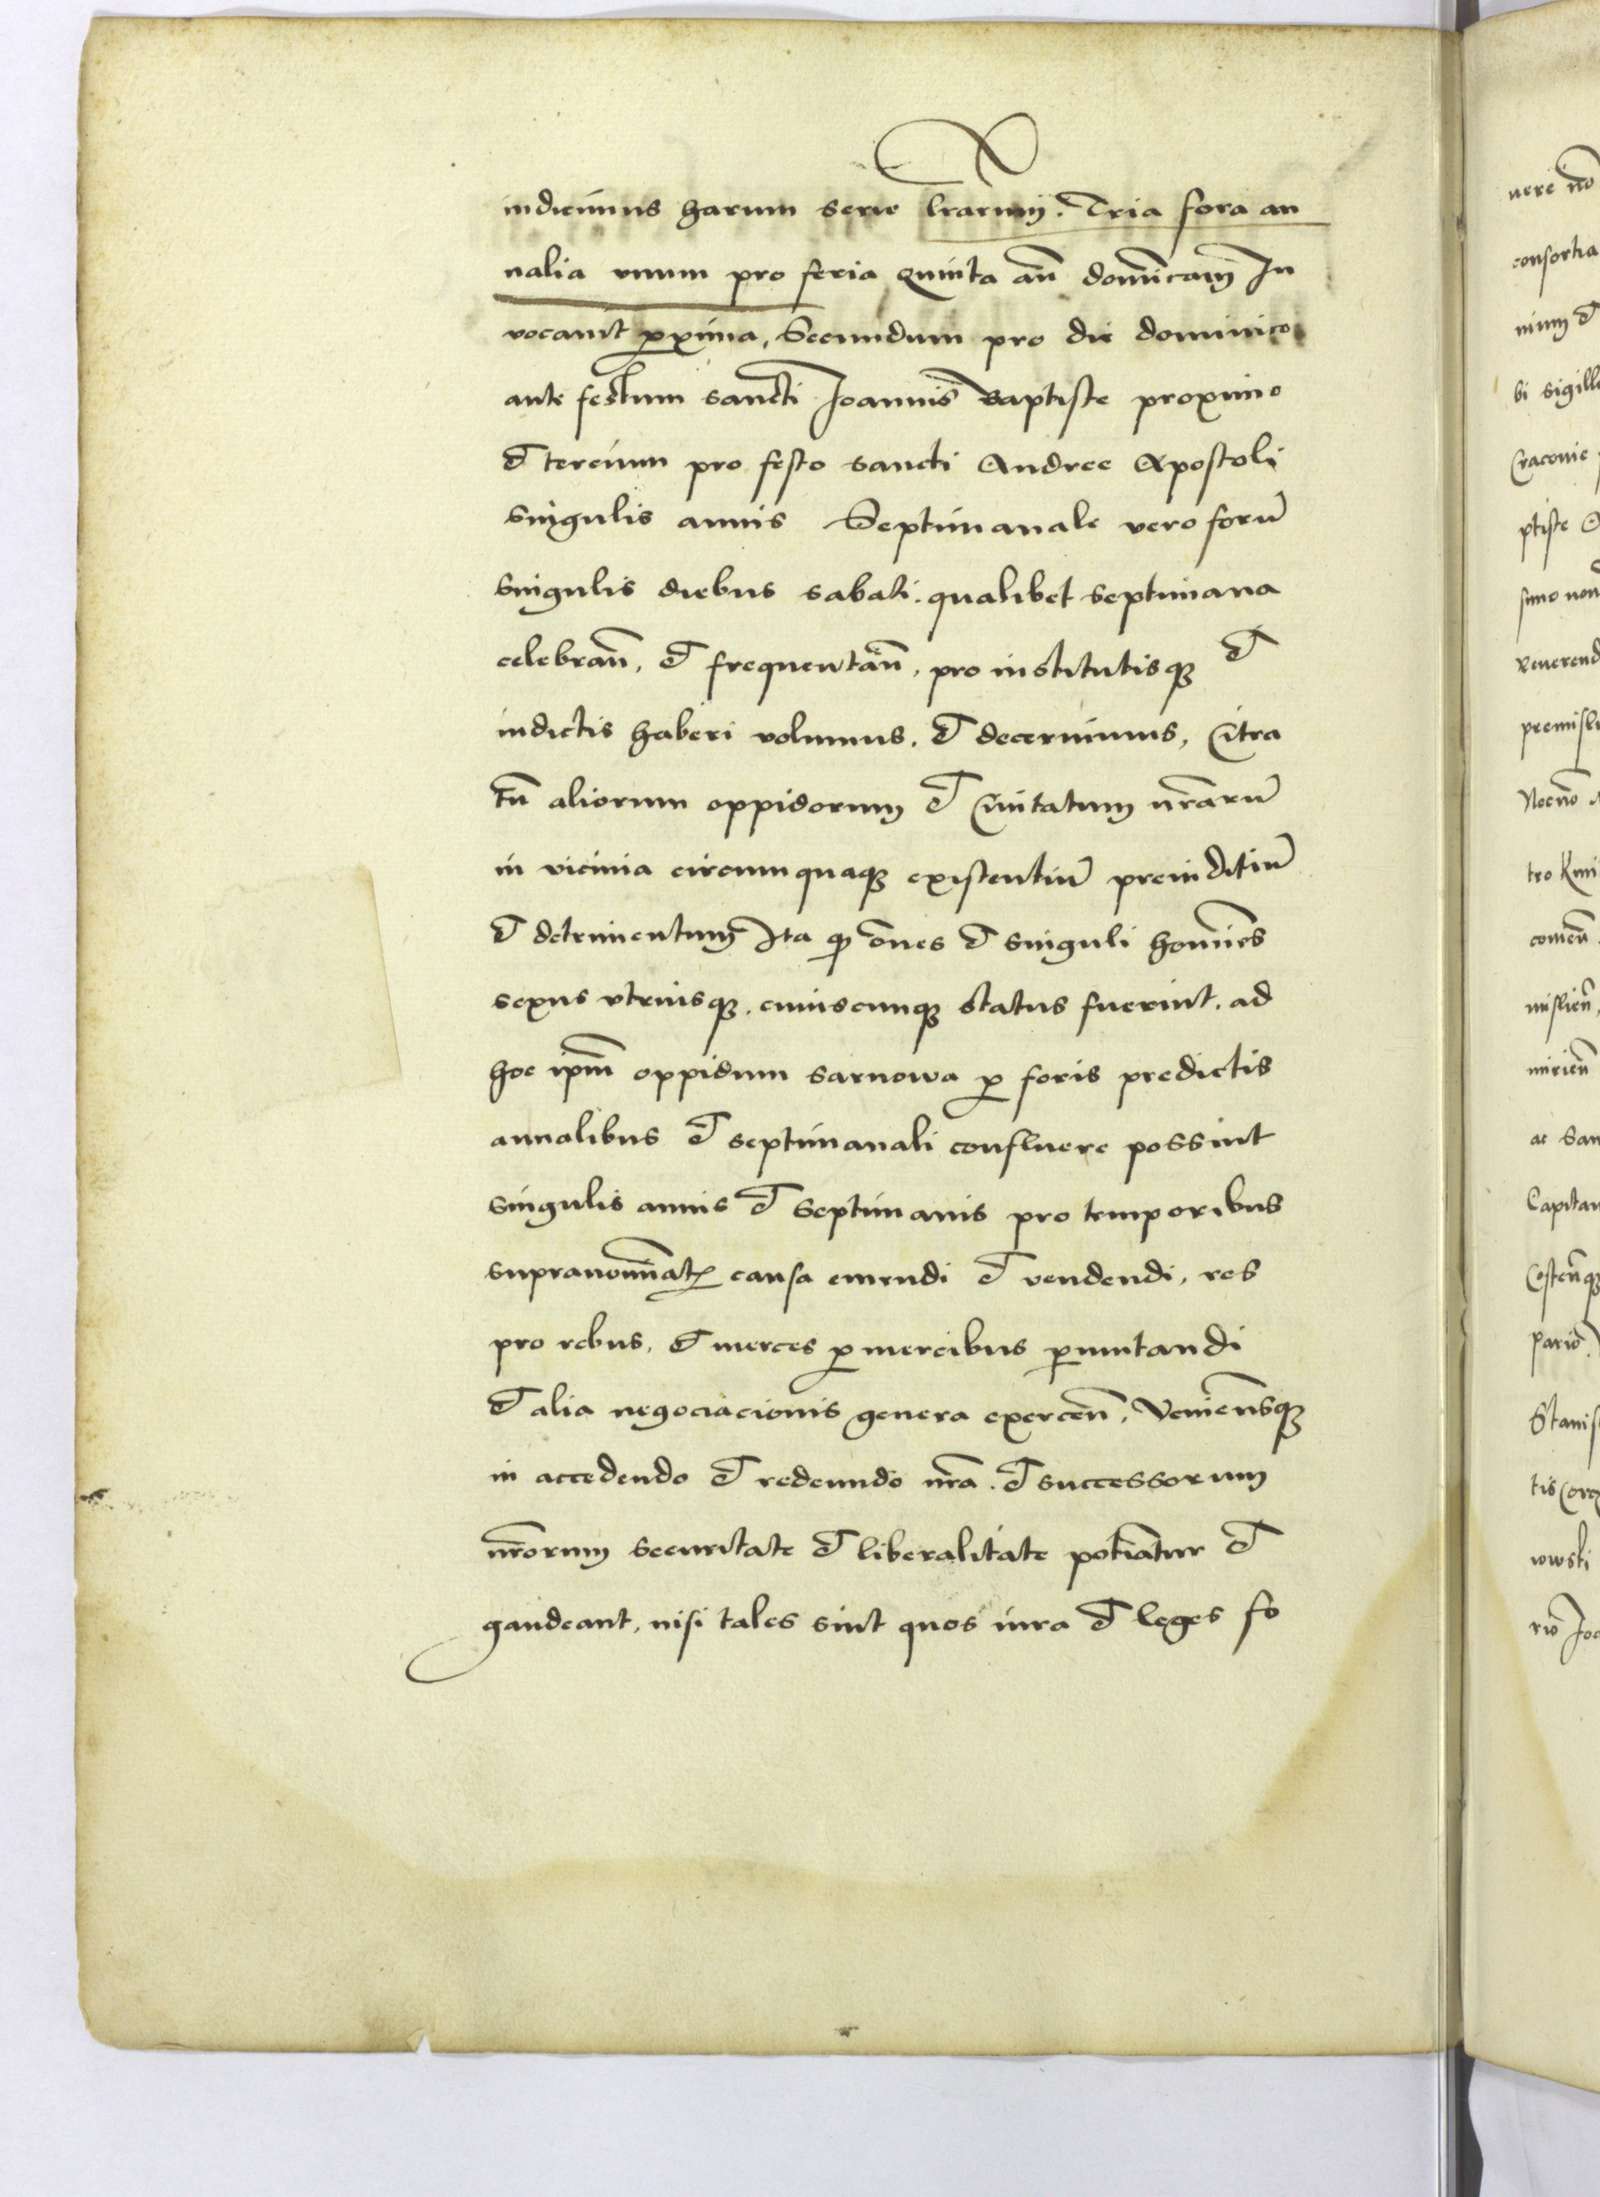 indicimus harum serie lrarum. Tria fora an
nalia vnum pro feria quinta añ dominicam In
vocavit proxima, Secundum pro die dominico
ante festum sancti Joannis Baptiste proximo
et tercium pro festo sancti Andree Apostoli
singulis annis Septimanale vero forũ
singulis diebus sabati. qualibet septimana
celebrañ, et frequentañ, pro institutisq et
indictis haberi volumus, et decernimus, Citra
tñ aliorum oppidorum et Ciuitatum nrarũ
in vicinia circumquaq existentiũ preiuditiũ
et detrimentum Ita q oñes et singuli homines
sexus vtriusq, cuiuscunq status fuerint, ad
hoc ipm oppidum Sarnowa p foris predictis
annalibus et septimanali confluere possint
singulis annis et septimanis pro temporibus
supranominatis causa emendi et vendendi, res
pro rebus, et merces p mercibus pmutandi
et alia negociacionis genera exerceñ, Veniensq
in accedendo et redeundo nra. et successorum
nrorum securitate et liberalitate potiantur et
gaudeant, nisi tales sint quos iura et leges fo
vere nõ
consortia
nium et
bi sigill
Cracovie
ptiste
simo non
Reuerend
premisli
Necnõ
tro Kmi
comeñ
misli
mirieñ
ac San
Capitan
Costeñq
pario
Stanis
tis Cor
wski
riõ Joa